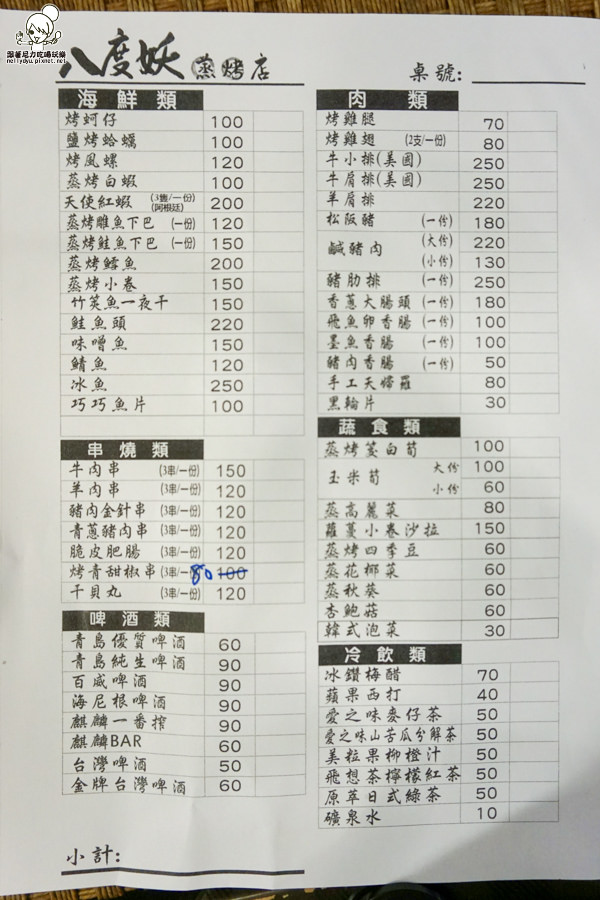 跟著尼力吃喝玩樂
nellydyu.pixnet.net
八度妖蒸烤店
桌號:
海鮮類
烤蚵仔 100
鹽烤蛤蠣 100
烤風螺 120
蒸烤白蝦 100
天使紅蝦 (3隻/一份)(阿根廷) 200
蒸烤鵰魚下巴 (一份) 120
蒸烤鮭魚下巴 (一份) 150
蒸烤鱈魚 200
蒸烤小卷 150
竹筴魚一夜干 150
鮭魚頭 220
味噌魚 150
鯖魚 120
冰魚 250
巧巧魚片 100
串燒類
牛肉串 (3串/一份) 150
羊肉串 (3串/一份) 120
豬肉金針串 (3串/一份) 120
青蔥豬肉串 (3串/一份) 120
脆皮肥腸 (3串/一份) 120
烤青甜椒串 (3串/一份) 80 100
干貝丸 (3串/一份) 120
啤酒類
青島優質啤酒 60
青島純生啤酒 90
百威啤酒 90
海尼根啤酒 90
麒麟一番搾 90
麒麟BAR 60
台灣啤酒 50
金牌台灣啤酒 60
小計:
肉類
烤雞腿 70
烤雞翅 (2支/一份) 80
牛小排(美國) 250
牛肩排(美國) 250
羊肩排 220
松阪豬 (一份) 180
鹹豬肉 (大份) 220
(小份) 130
豬肋排 (一份) 250
香蔥大腸頭 (一份) 180
飛魚卵香腸 (一份) 100
墨魚香腸 (一份) 100
豬肉香腸 (一份) 50
手工天婦羅 80
黑輪片 30
蔬食類
蒸烤茭白筍 100
玉米筍 大份 100
小份 60
蒸高麗菜 80
蘿蔓小卷沙拉 150
蒸烤四季豆 60
蒸花椰菜 60
蒸秋葵 60
杏鮑菇 60
韓式泡菜 30
冷飲類
冰鑽梅醋 70
蘋果西打 40
愛之味麥仔茶 50
愛之味山苦瓜分解茶 50
美粒果柳橙汁 50
飛想茶檸檬紅茶 50
原萃日式綠茶 50
礦泉水 10